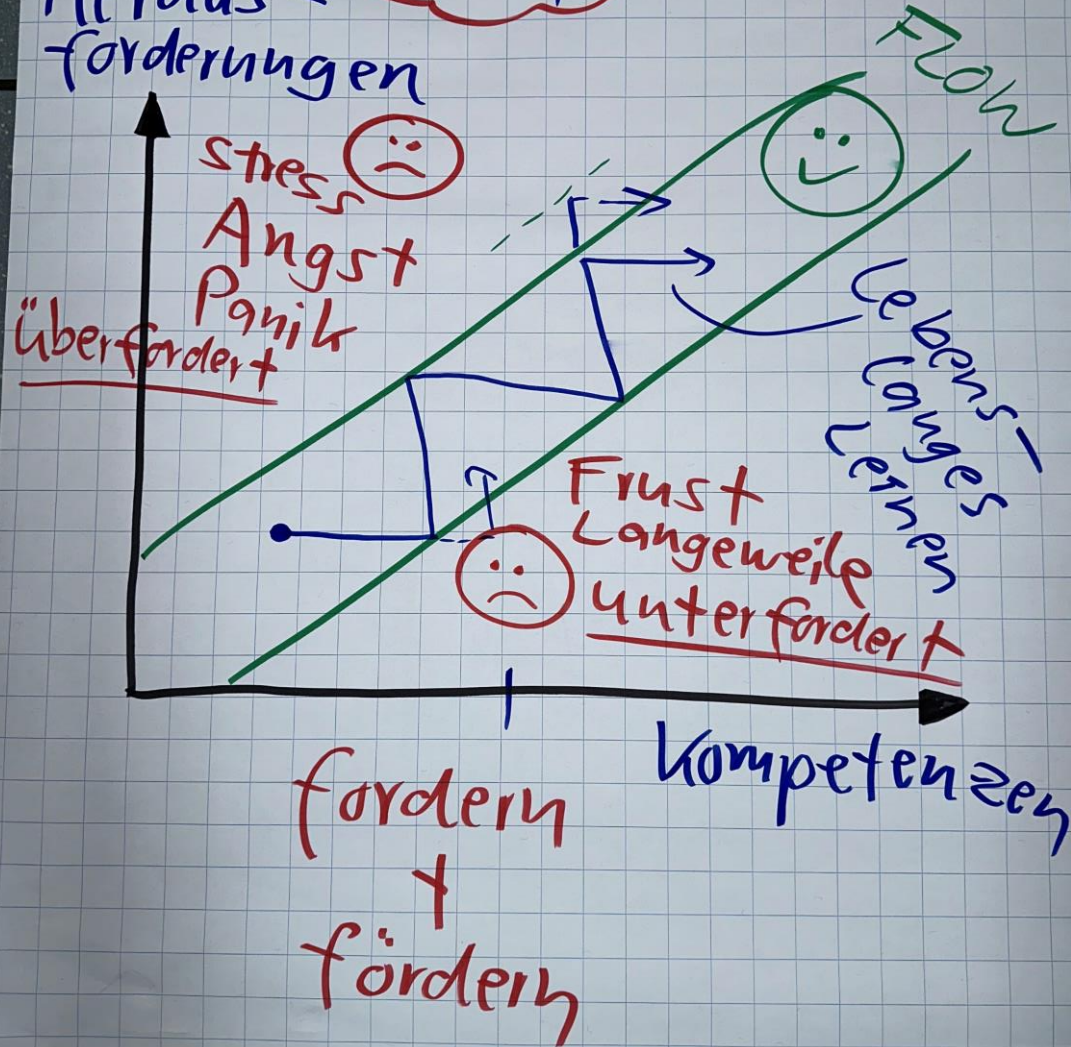 forderungen
Flow
Stress
Angst
Panik
überfordert
Lebens-
langes
Lernen
Frust
Langeweile
unterfordert
Kompetenzen
fordern
+
fördern